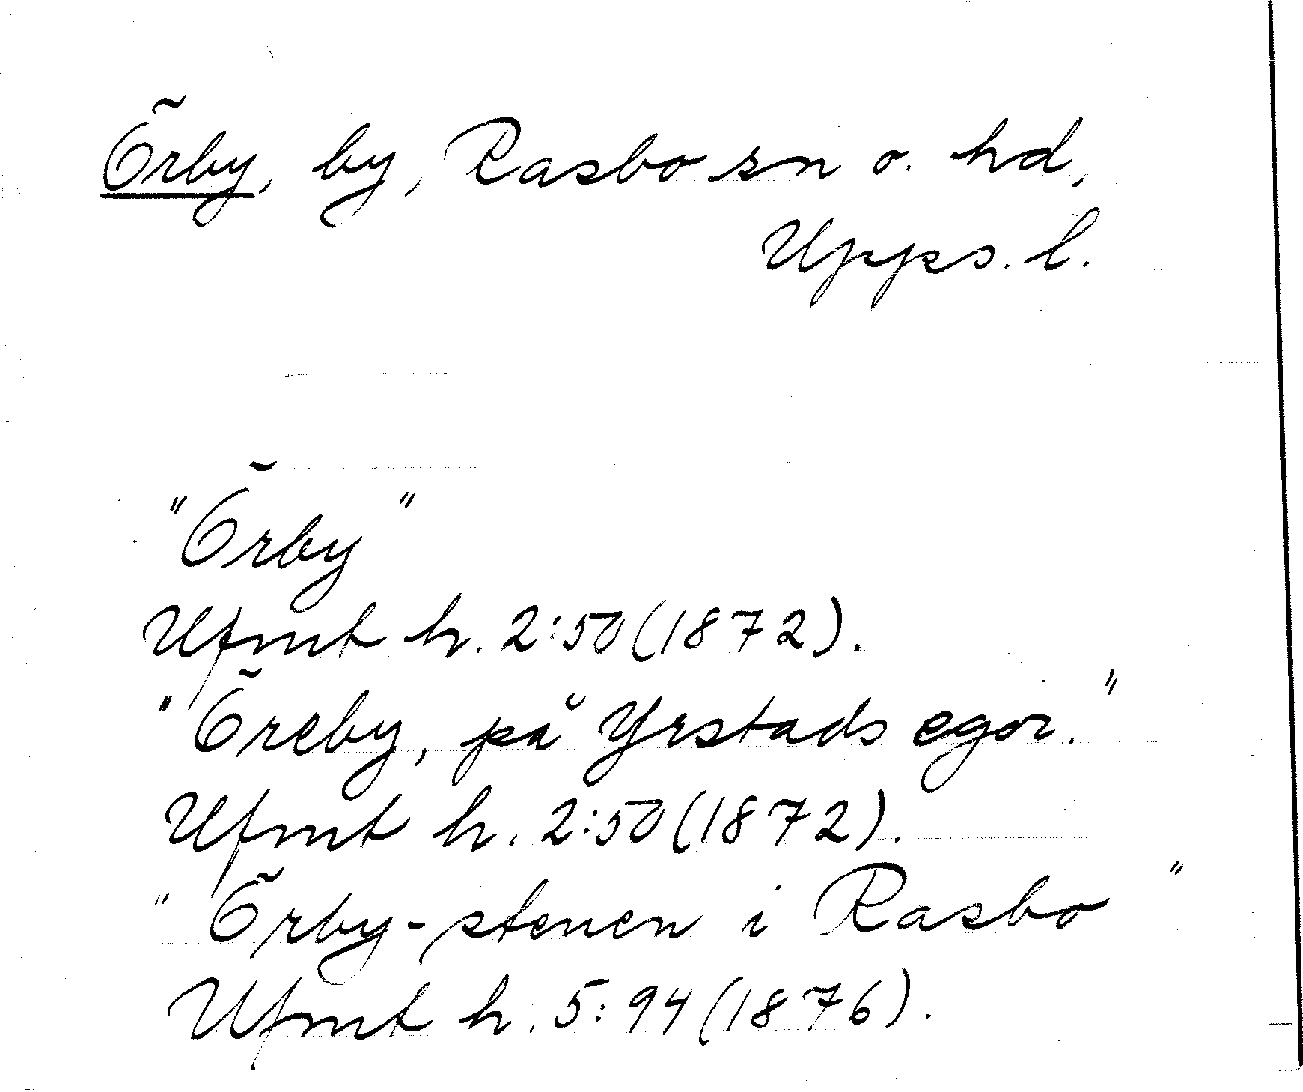 Örby, by, Rasbo sn o. hd,
Upps. l.
"Örby"
Ufmt h. 2:50 (1872).
"Öreby, på Yrstads egor."
Ufmt h. 2:50 (1872).
"Örby-stenen i Rasbo"
Ufmt h. 5:94 (1876).